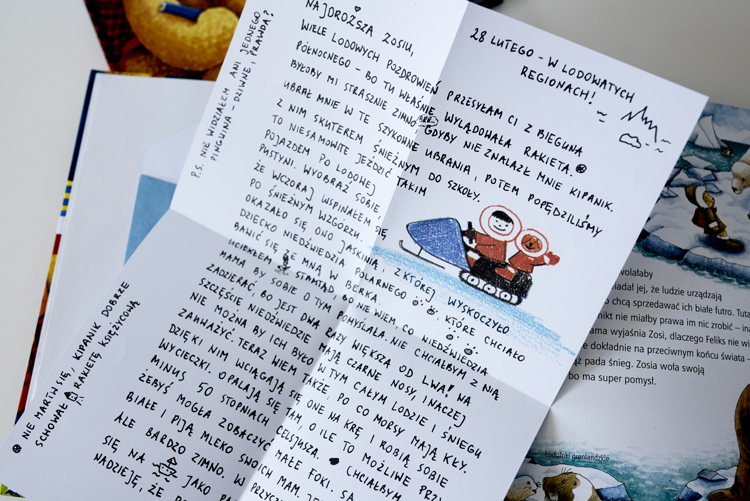 NAJDROŻSZA ZOSIU,
28 LUTEGO - W LODOWATYCH
REGIONACH!
WIELE LODOWYCH POZDROWIEŃ PRZESYŁAM CI Z BIEGUNA
PÓŁNOCNEGO - BO TU WŁAŚNIE WYLĄDOWAŁA RAKIETA.
BYŁOBY MI STRASZNIE ZIMNO BRR.. GDYBY NIE ZNALAZŁ MNIE KIPANIK.
UBRAŁ MNIE W TE SZYKOWNE UBRANIA, I POTEM POPĘDZILIŚMY
Z NIM SKUTEREM ŚNIEŻNYM DO SZKOŁY.
TO NIESAMOWITE JEŹDZIĆ TAKIM
POJAZDEM PO LODOWEJ
PUSTYNI. WYOBRAŹ SOBIE
ŻE WCZORAJ WSPINAŁEM SIĘ
PO ŚNIEŻNYM WZGÓRZU.
OKAZAŁO SIĘ ONO JASKINIĄ, Z KTÓREJ WYSKOCZYŁO
DZIECKO NIEDŹWIEDZIA POLARNEGO, KTÓRE CHCIAŁO
BAWIĆ SIĘ ZE MNĄ W BERKA.
UCIEKŁEM STAMTĄD, BO NIE WIEM, CO NIEDŹWIEDZIA
MAMA BY SOBIE O TYM POMYŚLAŁA. NIE CHCIAŁBYM Z NIĄ
ZADZIERAĆ, BO JEST DWA RAZY WIĘKSZA OD LWA! NA
SZCZĘŚCIE NIEDŹWIEDZIE MAJĄ CZARNE NOSY, INACZEJ
NIE MOŻNA BY ICH BYŁO W TYM CAŁYM LODZIE I ŚNIEGU
ZAUWAŻYĆ. TERAZ WIEM TAKŻE, PO CO MORSY MAJĄ KŁY.
DZIĘKI NIM WCIĄGAJĄ SIĘ ONE NA KRĘ I ROBIĄ SOBIE
WYCIECZKI. OPALAJĄ SIĘ TAM, O ILE TO MOŻLIWE PRZY
MINUS 50 STOPNIACH CELSJUSZA. CHCIAŁBYM
ŻEBYŚ MOGŁA ZOBACZYĆ MAŁE FOKI. SĄ
BIAŁE I PIJĄ MLEKO SWOICH MAM.
ALE BARDZO ZIMNO W
SIĘ NA JAKO
NADZIEJĘ, ŻE
P.S. NIE WIDZIAŁEM ANI JEDNEGO
PINGUINA - DZIWNE, PRAWDA?
NIE MARTW SIĘ, KIPANIK DOBRZE
SCHOWAŁ RAKIETĘ KSIĘŻYCOWĄ
wolałaby
adał jej, że ludzie urządzają
chcą sprzedawać ich białe futro. Tuta
nikt nie miałby prawa im nic zrobić – in
ama wyjaśnia Zosi, dlaczego Feliks nie wi
dokładnie na przeciwnym końcu świata –
pad śniegu. Zosia woła swoją
bo ma super pomysł.
Lodofoki grenlandzkie